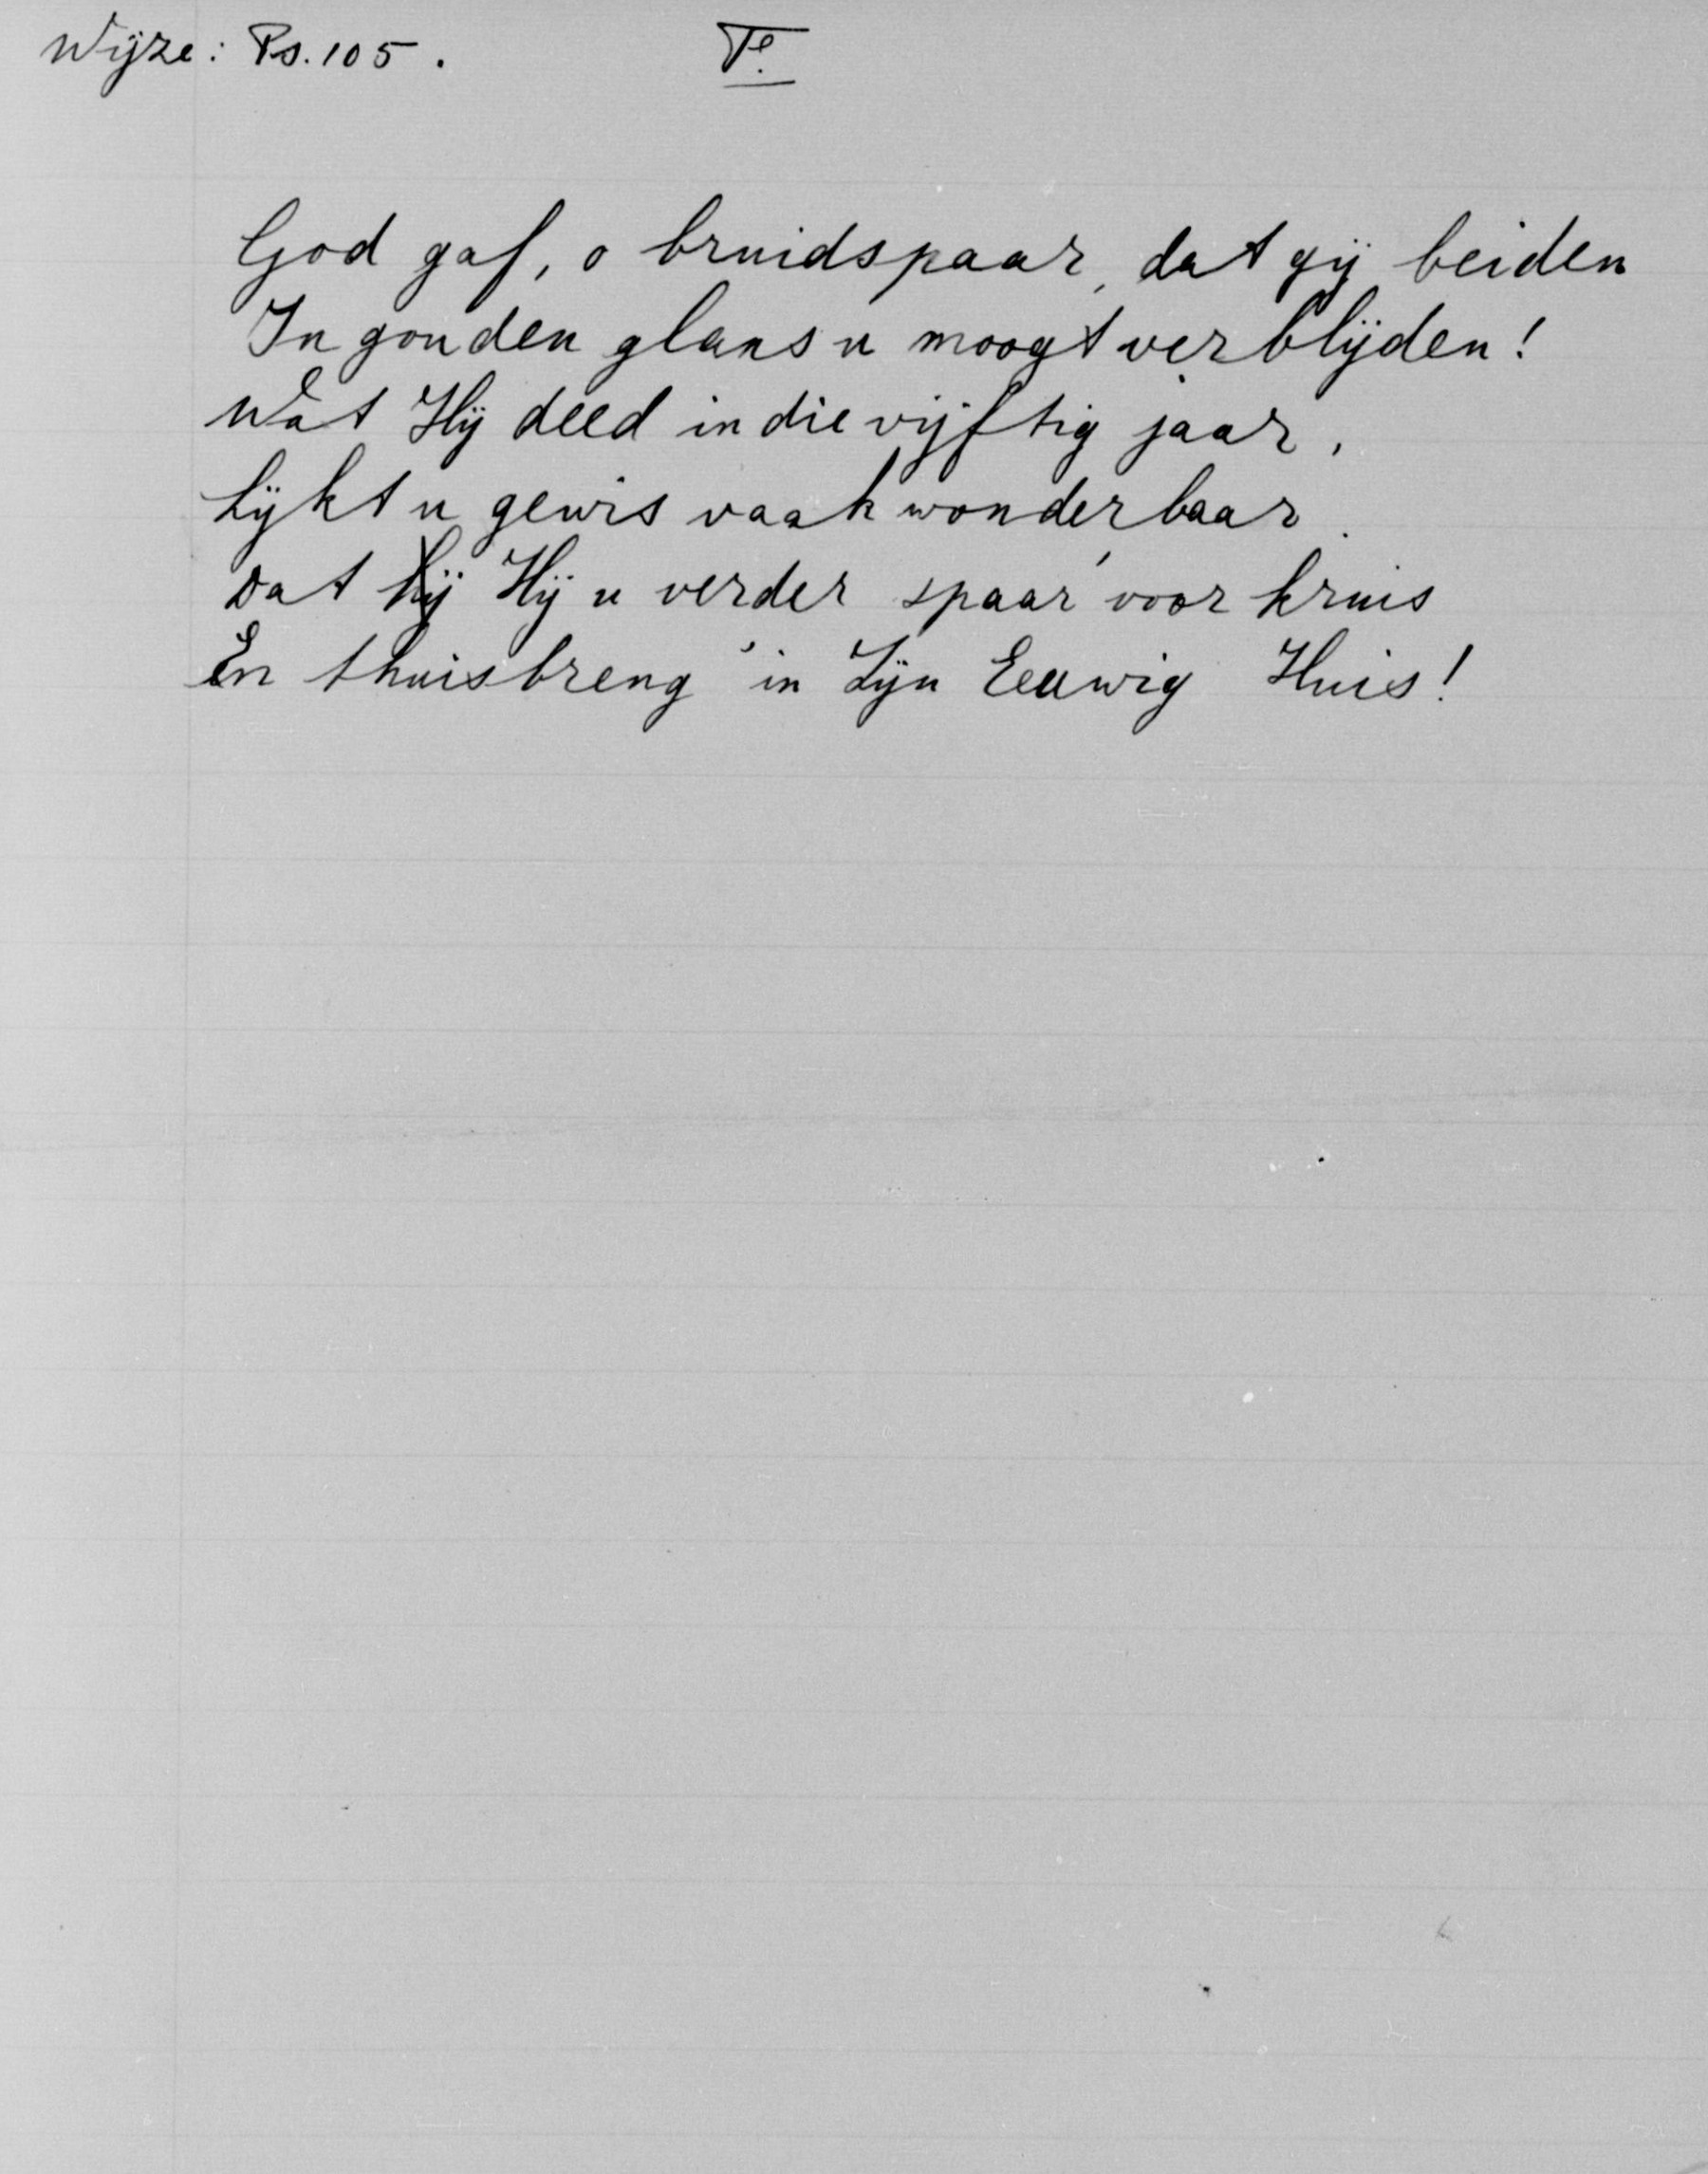 Wijze: Ps. 105. Ie.
God gaf, o bruidspaar, dat gij beiden
In gouden glans u moogt verblijden!
Wat Hij deed in die vijftig jaar,
Lijkt u gewis vaak wonderbaar.
Dat hij Hij u verder spaar' voor kruis
En thuisbreng' in Zijn Eeuwig Huis!